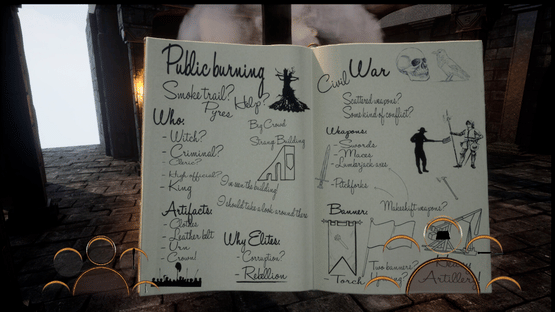 Public burning
Smoke trail?
Pyres
Help?
By Crowd
Strong Building
Who:
- Witch?
- Criminal?
- Cleric?
- High official?
- King
I've seen the building!
I should take a look around there
Artifacts:
- Clothes
- Leather belt
- Urn
- Crown!
Why Elites:
- Corruption?
- Rebellion
Civil War
Scattered weapons?
Some kind of conflict?
Weapons:
- Swords
- Maces
- Lumberjack axes
- Pitchforks
Makeshift weapons?
Banner:
Two banners?
- Torch
Artillery!